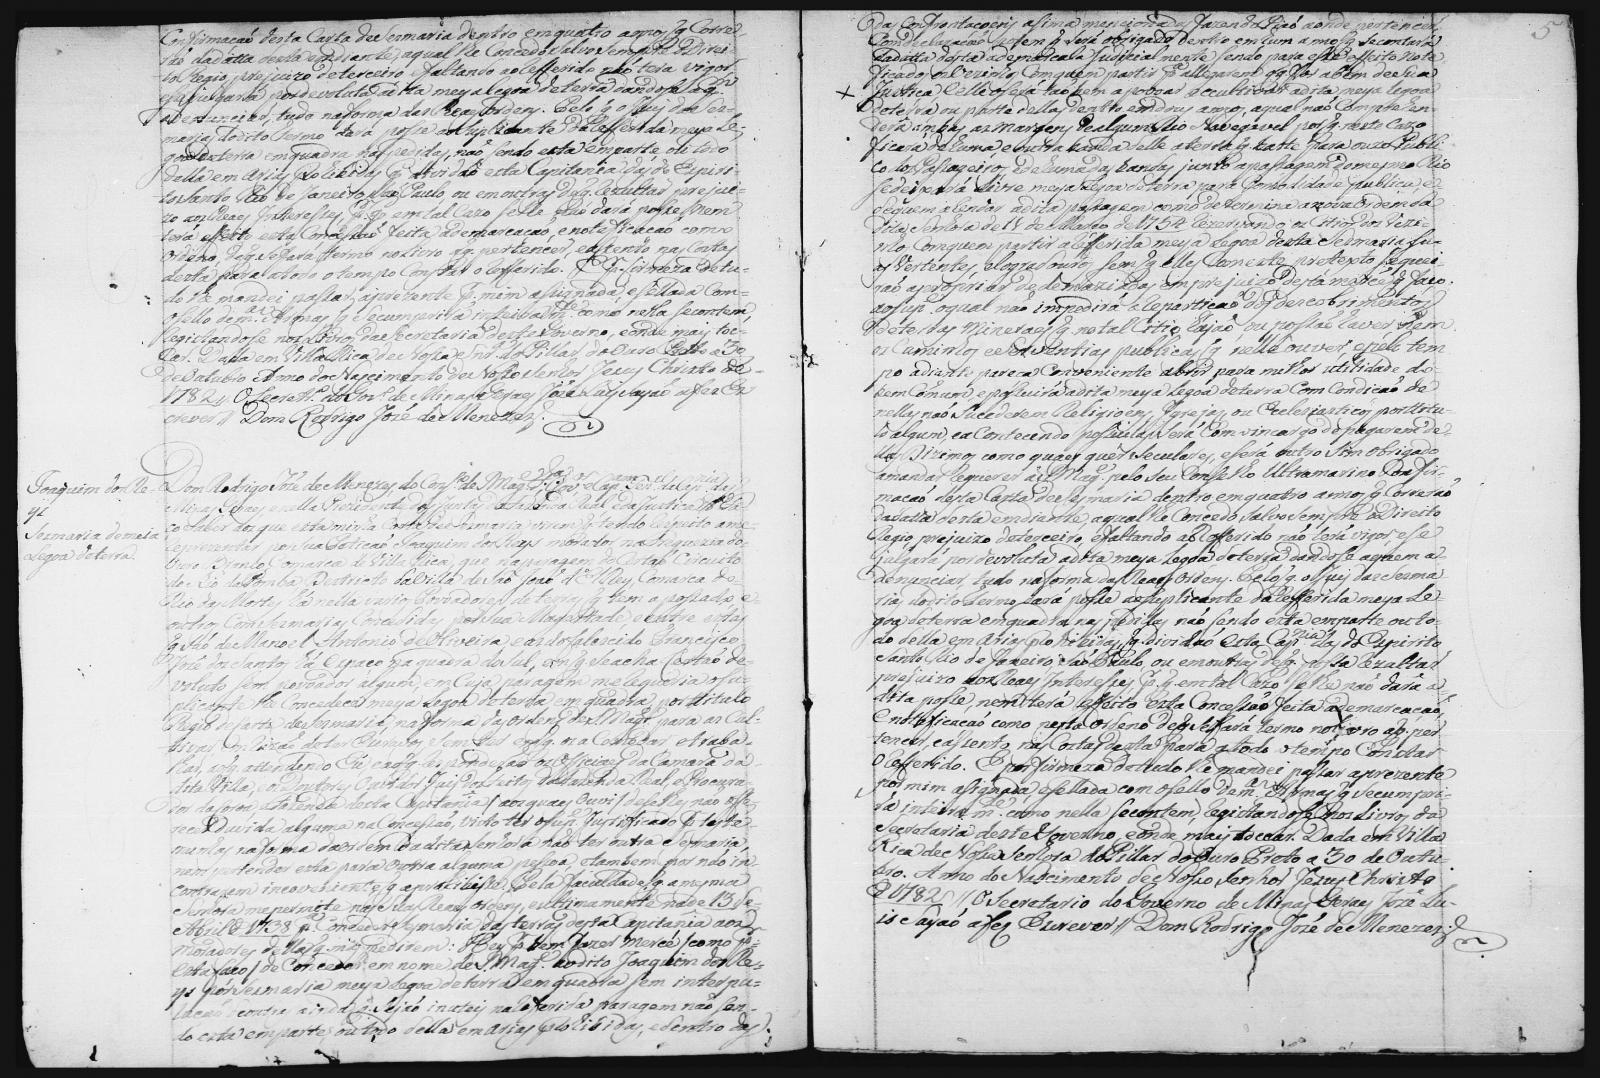 Confirmação desta Carta de Sesmaria dentro em quatro annos q. Corre-
rão da datta desta em diante, a qual lhe Concedo Salvo sempre o Direi-
to Regio, prejuizo de terceiro, e faltando ao Refferido não terá vigor,
e se julgará por devoluta a dita meya legoa de terra dandose a q.m
a denunciar, tudo na forma das Reaes Ordens. Pelo q. o Juiz das Ses-
marias do dito termo dará posse ao Suplicante da Refferida meya Le-
goa de terra em quadra nas pedidas, não sendo esta em parte ou todo
della em Arias Prohibidas q. dividão esta Capitania das do Espiri-
to Santo Rio de Janeiro, São Paulo, ou em outras de q. rezultar prejui-
zo aos Reaes Interesses, p.q. em tal Cazo se lhe não dará posse, nem
terá effeito esta Concessão feita a demarcação, e notificação como
Ordeno, de q. se fará termo no Livro a q. pertencer, e assento nas Costas
desta para a todo o tempo Constar o Refferido. E p. firmeza de tu-
do lhe mandei passar a prezente p. mim assignada, e sellada Com
o sello de m.as Armas q. se cumprirá inteiram.te como nella se contem,
Registandose nos Livros da Secretaria deste Governo, e onde mais toc-
car. Dada em Villa Rica de Nossa Snr.a do Pillar do Ouro Preto a 30
de Outubro Anno do Nascimento de Nosso Senhor Jesus Christo de
1782 // O Secretr.o do Gov.o de Minas Geraes José Luis Sayão a fes Es-
crever // Dom Rodrigo José de Menezes.
Joaquim dos Re-
ys
Sesmaria de meia
Legoa de terra.
Dom Rodrigo José de Menezes, do Cons.o de S. Mag.e
Minas Geraes, e nella Prezidente das Juntas da Fazenda Real e da Justica &a Fa-
ço saber aos que esta minha Carta de Sesmaria virem q. tendo respeito a me
reprezentar por sua Petição Joaquim dos Reys morador na Freguezia do
Ouro Branco Comarca de Villa Rica, que na paragem do Certão Circuito
do Rio da Pomba Destricto da Villa de São João d'El Rey, Comarca do
Rio das Mortes há nella varios Povoadores de terras, q. tem a possado e
outros Com Sesmarias Concedidas por Sua Magestade, e entre estas
q. são de Manoel Antonio de Oliveira, e as do falescido Francisco
José dos Santos há espaço na quadra do Sul, em q. se acha Certão de-
voluto sem povoador algum, em cuja paragem me requeria o su-
plicante lhe Concedece meya Legoa de terra em quadra, por titulo
Regio de Carta de Sesmaria, na forma das ordens de S. Mag.e para as Cul-
tivar em razão de ter Escravos, e sem ter em q. os Conservar e traba-
lhar, ao q. attendendo Eu, e ao q. responderão os Officiaes da Camara da
dita Villa, e os Doutores Ouvidor, Juiz dos feitos da Fazenda Real, e Procura-
dor da Coroa e Fazenda desta Capitania (aos quaes Ouvi) de se lhe não offe-
recer Duvida alguma na Concessão, visto ter o sup.e Justificado por teste-
munhas na forma da ordem da dita Senhora não ter outra Sesmaria,
nem pertender esta para Outra alguma pessoa, e tambem por não in-
contrarem inconveniente q. a prohibisse. Pela faculdade q. a mesma
Senhora me permite nas suas Reaes ordens, e ultimamente na de 13 de
Abril de 1738 p.a Conceder Sesmarias das terras desta Capitania aos
moradores della q. mas pedirem: Hey p. bem fazer Mercê (como p.r
esta faço) de Conceder em nome de S. Mag.e ao dito Joaquim dos Re-
ys por Sesmaria meya Legoa de terra em quadra sem interpo-
lação de outra ainda q. sejão inuteis na Referida paragem não sen-
do esta em parte, ou todo della em Arias prohibidas, e dentro das
5
das Confrontaçoens asima mencionadas, fazendo Pião aonde pertencer
Com declaração porem q. será obrigado dentro em hum anno q. se contará
da datta desta a demarcala Judicialmente sendo para esse effeito noti-
ficados os Vizinhos Com quem partir p.a allegarem o q. for a bem de sua
Justica: e elle o será tão bem a povoar e cultivar a dita meya legoa
de terra ou parte della, dentro em dous annos, a qual não Comprehen-
derá ambas as Margens de algum Rio Navegavel por q. neste Cazo
ficará de huma e outra banda delle a terra q. baste para o uso Publi-
co dos Passageiros, e de huma das bandas, junto a passagem do mesmo Rio
se deixará livre meya Legoa de terra para Comodidade publica, e de
quem arendar a dita passagem como determina a nova Ordem da
dita Senhora de 11 de Março de 1754 rezervando os Citios dos Vizi-
nhos Com quem partir a refferida meya Legoa desta Sesmaria su-
as Vertentes, e logradouros sem q. elles Com este pretexto se quei-
rão apropriar de demaziadas em prejuizo desta mercê q. faço
ao sup.e o qual não impedirá a repartição dos descobrimentos
de terras Mineraes q. no tal Citio hajão ou possão haver, nem
os Caminhos e serventias publicas q. nelle ouver, e pelo tem-
po adiante pareca Conveniente abrir para milhor utilidade do
bem Comum, e possuirá a dita meya Legoa de terra Com Condição de
nellas não sucederem Religioens, Igrejas, ou Ecclesiasticos por titu-
lo algum, e a Contecendo possuilas será com o incargo de pagarem del-
las Dizimos como quaesquer Seculares, e será outro sim obrigado
a mandar requerer a S. Mag.e pelo seu Conselho Ultramarino Confir-
mação desta Carta de Sesmaria dentro em quatro annos q. correrão
da datta desta em diante, a qual lhe Concedo salvo sempre o Direito
Regio prejuizo de terceiro, e faltando ao Refferido não terá vigor e se
julgará por devoluta a dita meya legoa de terra dandose a quem a
denunciar, tudo na forma das Reaes ordens. Pelo q. o Juiz das Sesma-
rias do dito termo dará posse ao suplicante da Refferida meya Le-
goa de terra em quadra nas pedidas não sendo esta em parte ou to-
do della em Arias prohibidas, q. dividão esta Cap.nia das do Espirito
Santo Rio de Janeiro, São Paulo, ou em outras de q. possa rezultar
prejuizo aos Reaes Interesses p. q. em tal Cazo se lhe não dará a
dita posse, nem terá effeito esta Concessão feita a demarcação,
e notificação como nesta ordeno de q. se fará termo no Livro a q. per-
tencer, e assento nas Costas desta para a todo o tempo Constar
o Refferido. E por firmeza de tudo lhe mandei passar a prezente
por mim assignada e sellada com o sello de m.as Armas q. se cumpri-
rá inteiram.te como nella se contem, registandose nos Livros da
Secretaria deste Governo, e onde mais toccar. Dada em Villa
Rica de Nossa Senhora do Pillar do Ouro Preto a 30 de Outu-
bro. Anno do Nascimento de Nosso Senhor Jesus Christo
de 1782 // O Secretario do Governo de Minas Geraes José Lu-
is Sayão a fes Escrever // Dom Rodrigo José de Menezes.